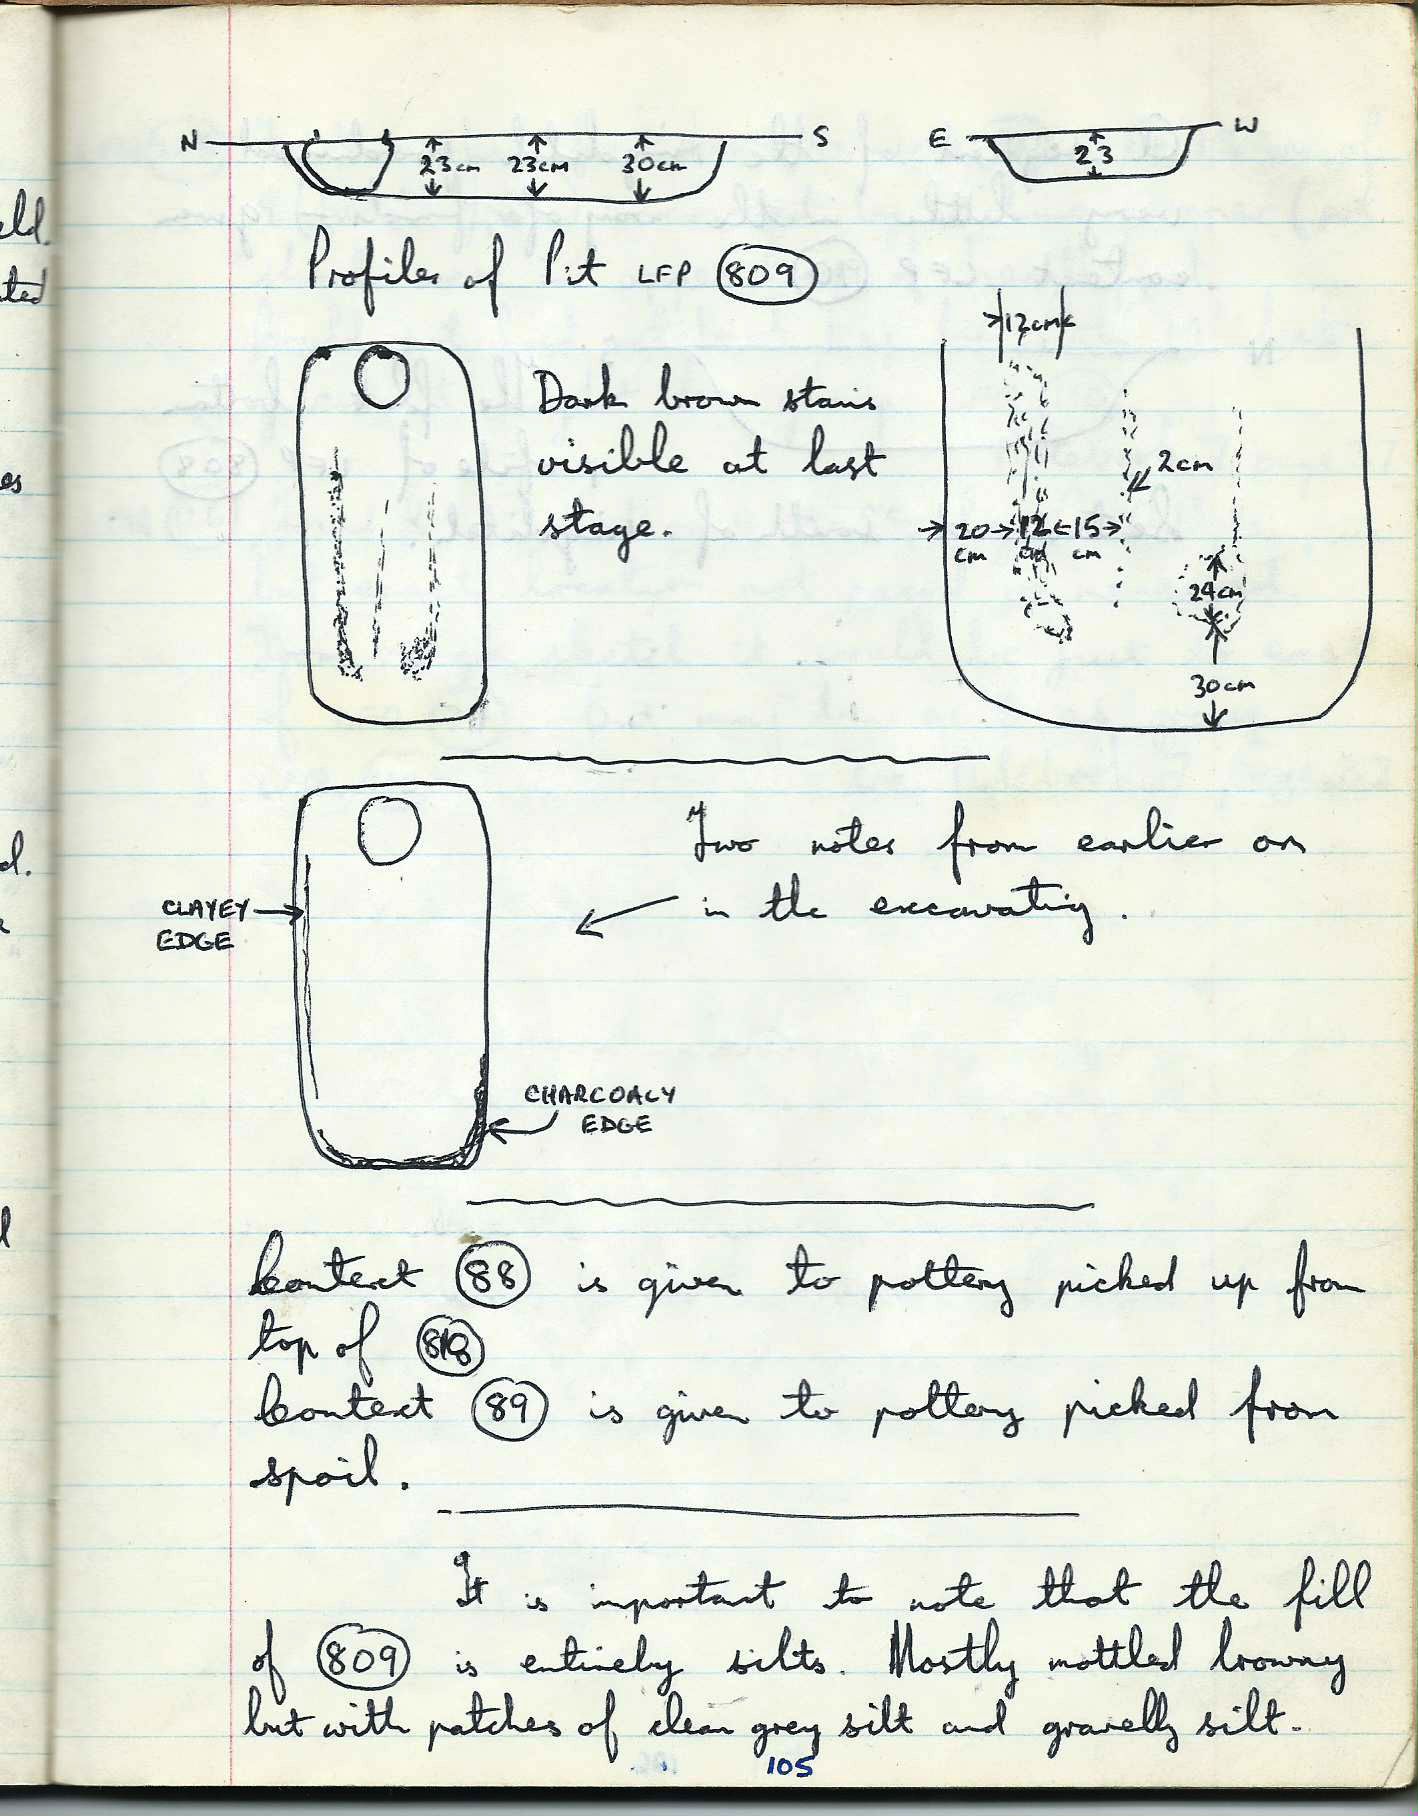 N S E W
23cm 23cm 30cm 23
Profiles of Pit LFP 809
12cm
Dark brown stains
visible at last
stage.
2cm
20 12 15
cm cm cm
24cm
30cm
Two notes from earlier on
in the excavating.
CLAYEY
EDGE
CHARCOALY
EDGE
Context 88 is given to pottery picked up from
top of
Context 89 is given to pottery picked from
spoil.
It is important to note that the fill
of 809 is entirely silts. Mostly mottled browny
but with patches of clean grey silt and gravelly silt.
105